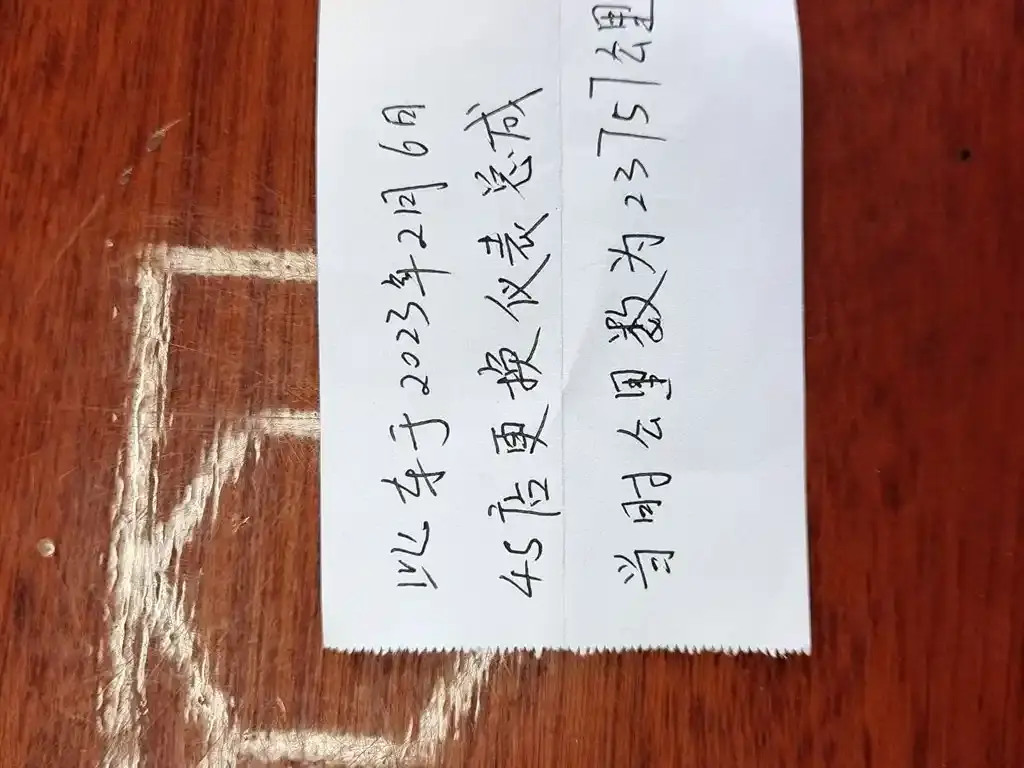 此车于2023年2月6日
4S店更换仪表总成
当时公里数为23757公里